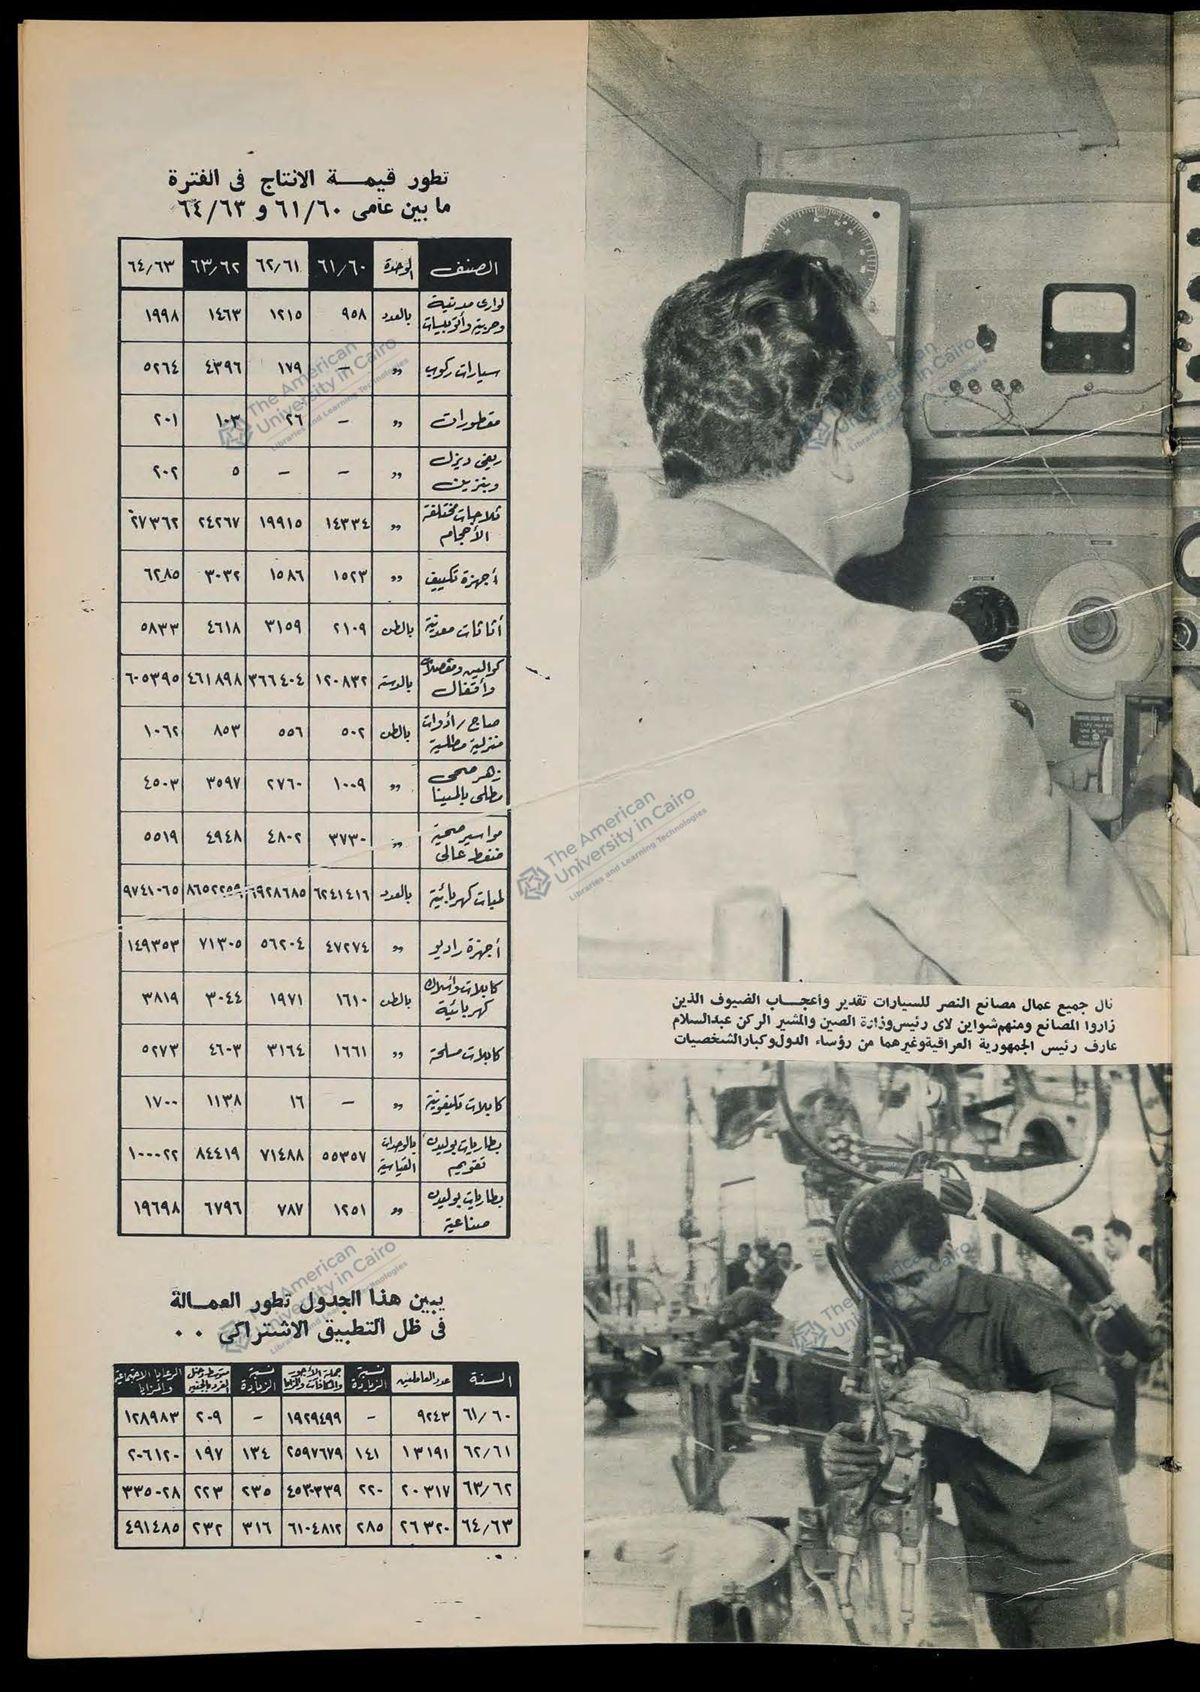 تطور قيمة الانتاج فى الفترة
ما بين عامى ٦١/٦٠ و ٦٤/٦٣
الصنف الوحدة ٦١/٦٠ ٦٢/٦١ ٦٣/٦٢ ٦٤/٦٣
لوارى مدنية وحربية وأتوبيسات بالعدد ٩٥٨ ١٢١٥ ١٤٦٣ ١٩٩٨
سيارات ركوب " – ١٧٩ ٤٣٩٦ ٥٢٦٤
مقطورات " – ٢٦ ١٠٣ ٢٠١
ديزل وبنزين " – – ٥ ٢٠٢
ثلاجات مختلفة الأحجام " ١٤٣٣٤ ١٩٩١٥ ٢٤٢٦٧ ٢٧٣٦٢
أجهزة تكييف " ١٥٢٣ ١٥٨٦ ٣٠٣٢ ٦٢٨٥
أثاثات معدنية بالطن ٢١٠٩ ٣١٥٩ ٤٦١٨ ٥٨٣٣
كوالين ومفصلات وأقفال بالدستة ١٢٠٨٣٢ ٣٦٦٤٠٤ ٤٦١٨٩٨ ٦٠٥٣٩٥
صاج / أدوات منزلية مطلية بالطن ٥٠٢ ٥٥٦ ٨٥٣ ١٠٦٢
زهر صحى مطلى بالمينا " ١٠٠٩ ٢٧٦٠ ٣٥٩٧ ٤٥٠٣
مواسير صحية ضغط عالى " ٣٧٣٠ ٤٨٠٢ ٤٩٤٨ ٥٥١٩
لمبات كهربائية بالعدد ٦٢٤١٤١٦ ٦٩٢٨٦٨٥ ٨٦٥٢٢٥٩ ٩٧٤١٠٦٥
أجهزة راديو " ٤٧٢٧٤ ٥٦٢٠٤ ٧١٣٠٥ ١٤٩٣٥٣
كابلات وأسلاك كهربائية بالطن ١٦١٠ ١٩٧١ ٣٠٤٤ ٣٨١٩
كابلات مسلحة " ١٦٦١ ٣١٦٤ ٤٦٠٣ ٥٢٧٣
كابلات تليفونية " – ١٦ ١١٣٨ ١٧٠٠
بطاريات بوليدن تقويم بالوحدات القياسية ٥٥٣٥٧ ٧١٤٨٨ ٨٤٤١٩ ١٠٠٠٢٢
بطاريات بوليدن صناعية " ١٢٥١ ٧٨٧ ٦٧٩٦ ١٩٦٩٨
يبين هذا الجدول تطور العمالة
فى ظل التطبيق الاشتراكى . .
السنة عدد العاملين نسبة الزيادة جملة الأجور والمكافآت والمزايا نسبة الزيادة متوسط دخل الفرد بالجنيه الرعايا الاجتماعية والمزايا
٦١/٦٠ ٩٢٤٣ – ١٩٢٩٤٩٩ – ٢٠٩ ١٢٨٩٨٣
٦٢/٦١ ١٣١٩١ ١٤١ ٢٥٩٧٦٧٩ ١٣٤ ١٩٧ ٢٠٦١٢٠
٦٣/٦٢ ٢٠٣١٧ ٢٢٠ ٤٥٣٠٣٣٩ ٢٣٥ ٢٢٣ ٣٣٥٠٢٨
٦٤/٦٣ ٢٦٣٢٠ ٢٨٥ ٦١٠٤٨١٢ ٣١٦ ٢٣٢ ٤٩١٤٨٥
نال جميع عمال مصانع النصر للسيارات تقدير وأعجاب الضيوف الذين
زاروا المصانع ومنهم شواين لاى رئيس وزارة الصين والمشير الركن عبد السلام
عارف رئيس الجمهورية العراقية وغيرهما من رؤساء الدول وكبار الشخصيات
The American
University in Cairo
Libraries and Learning Technologies